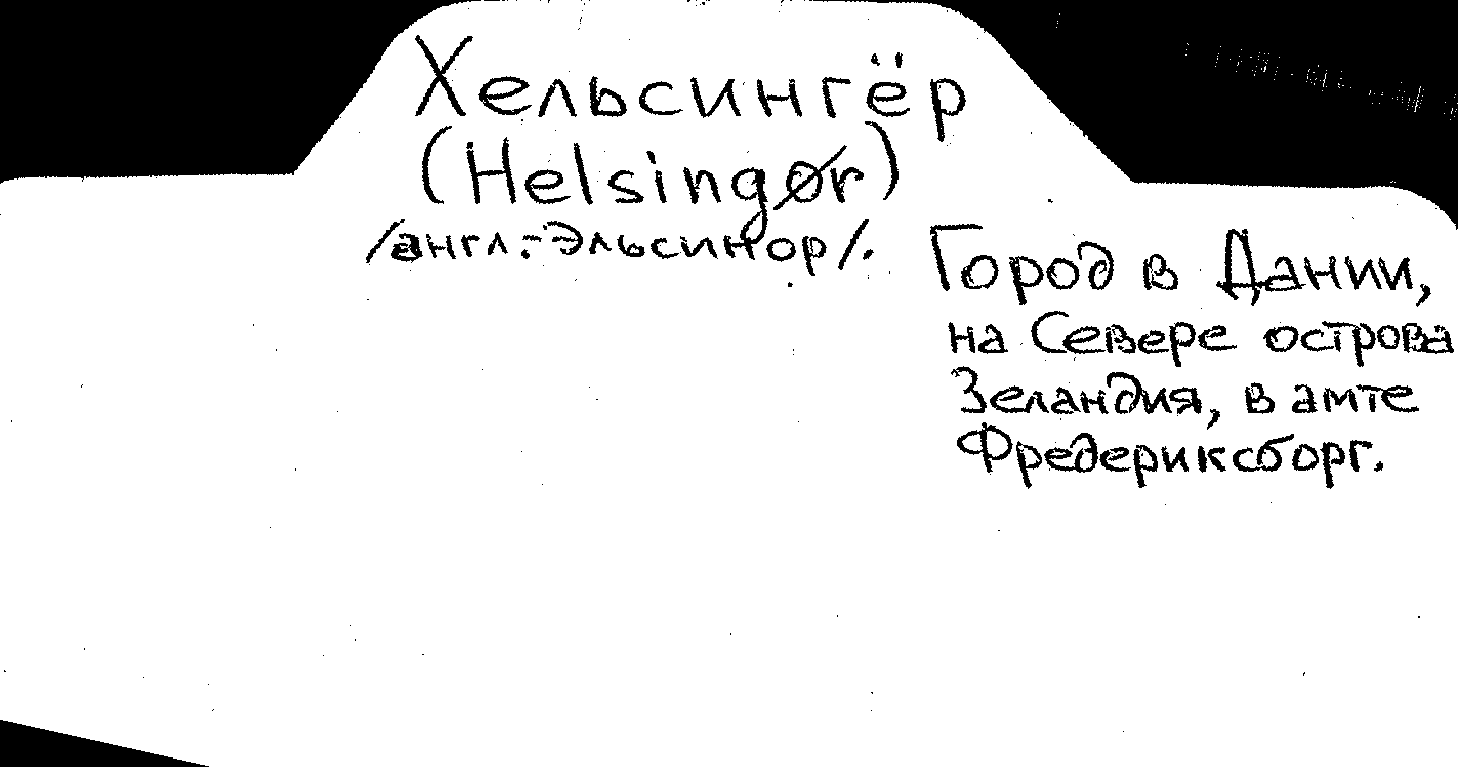 Хельсингёр
(Helsingør)
/англ.-Эльсинор/.
Город в Дании,
на Севере острова
Зеландия, в амте
Фредериксборг.